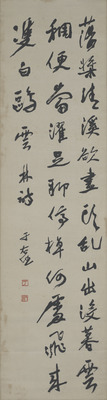 蕩槳清溪欲盡頭亂山出沒暮雲
稠便當濯足聊停棹何處飛來
雙白鷗 雲林詩
于右任